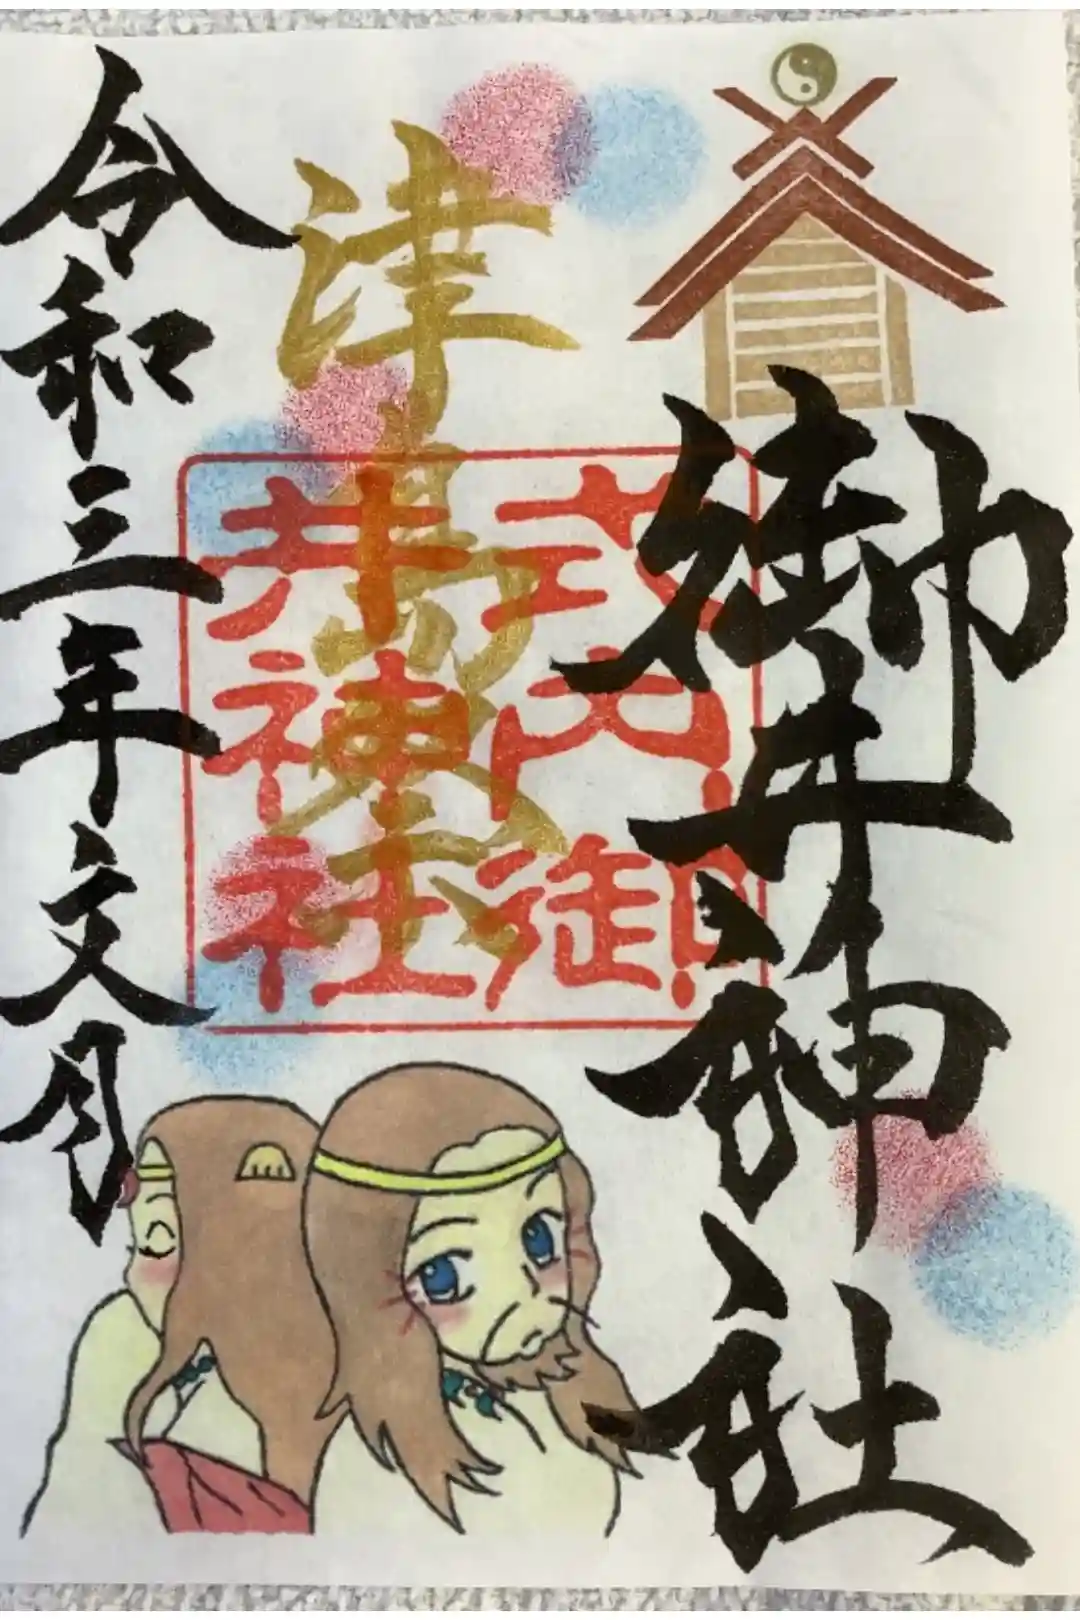 御井神社
津島
式内御
井神社
令和三年文月